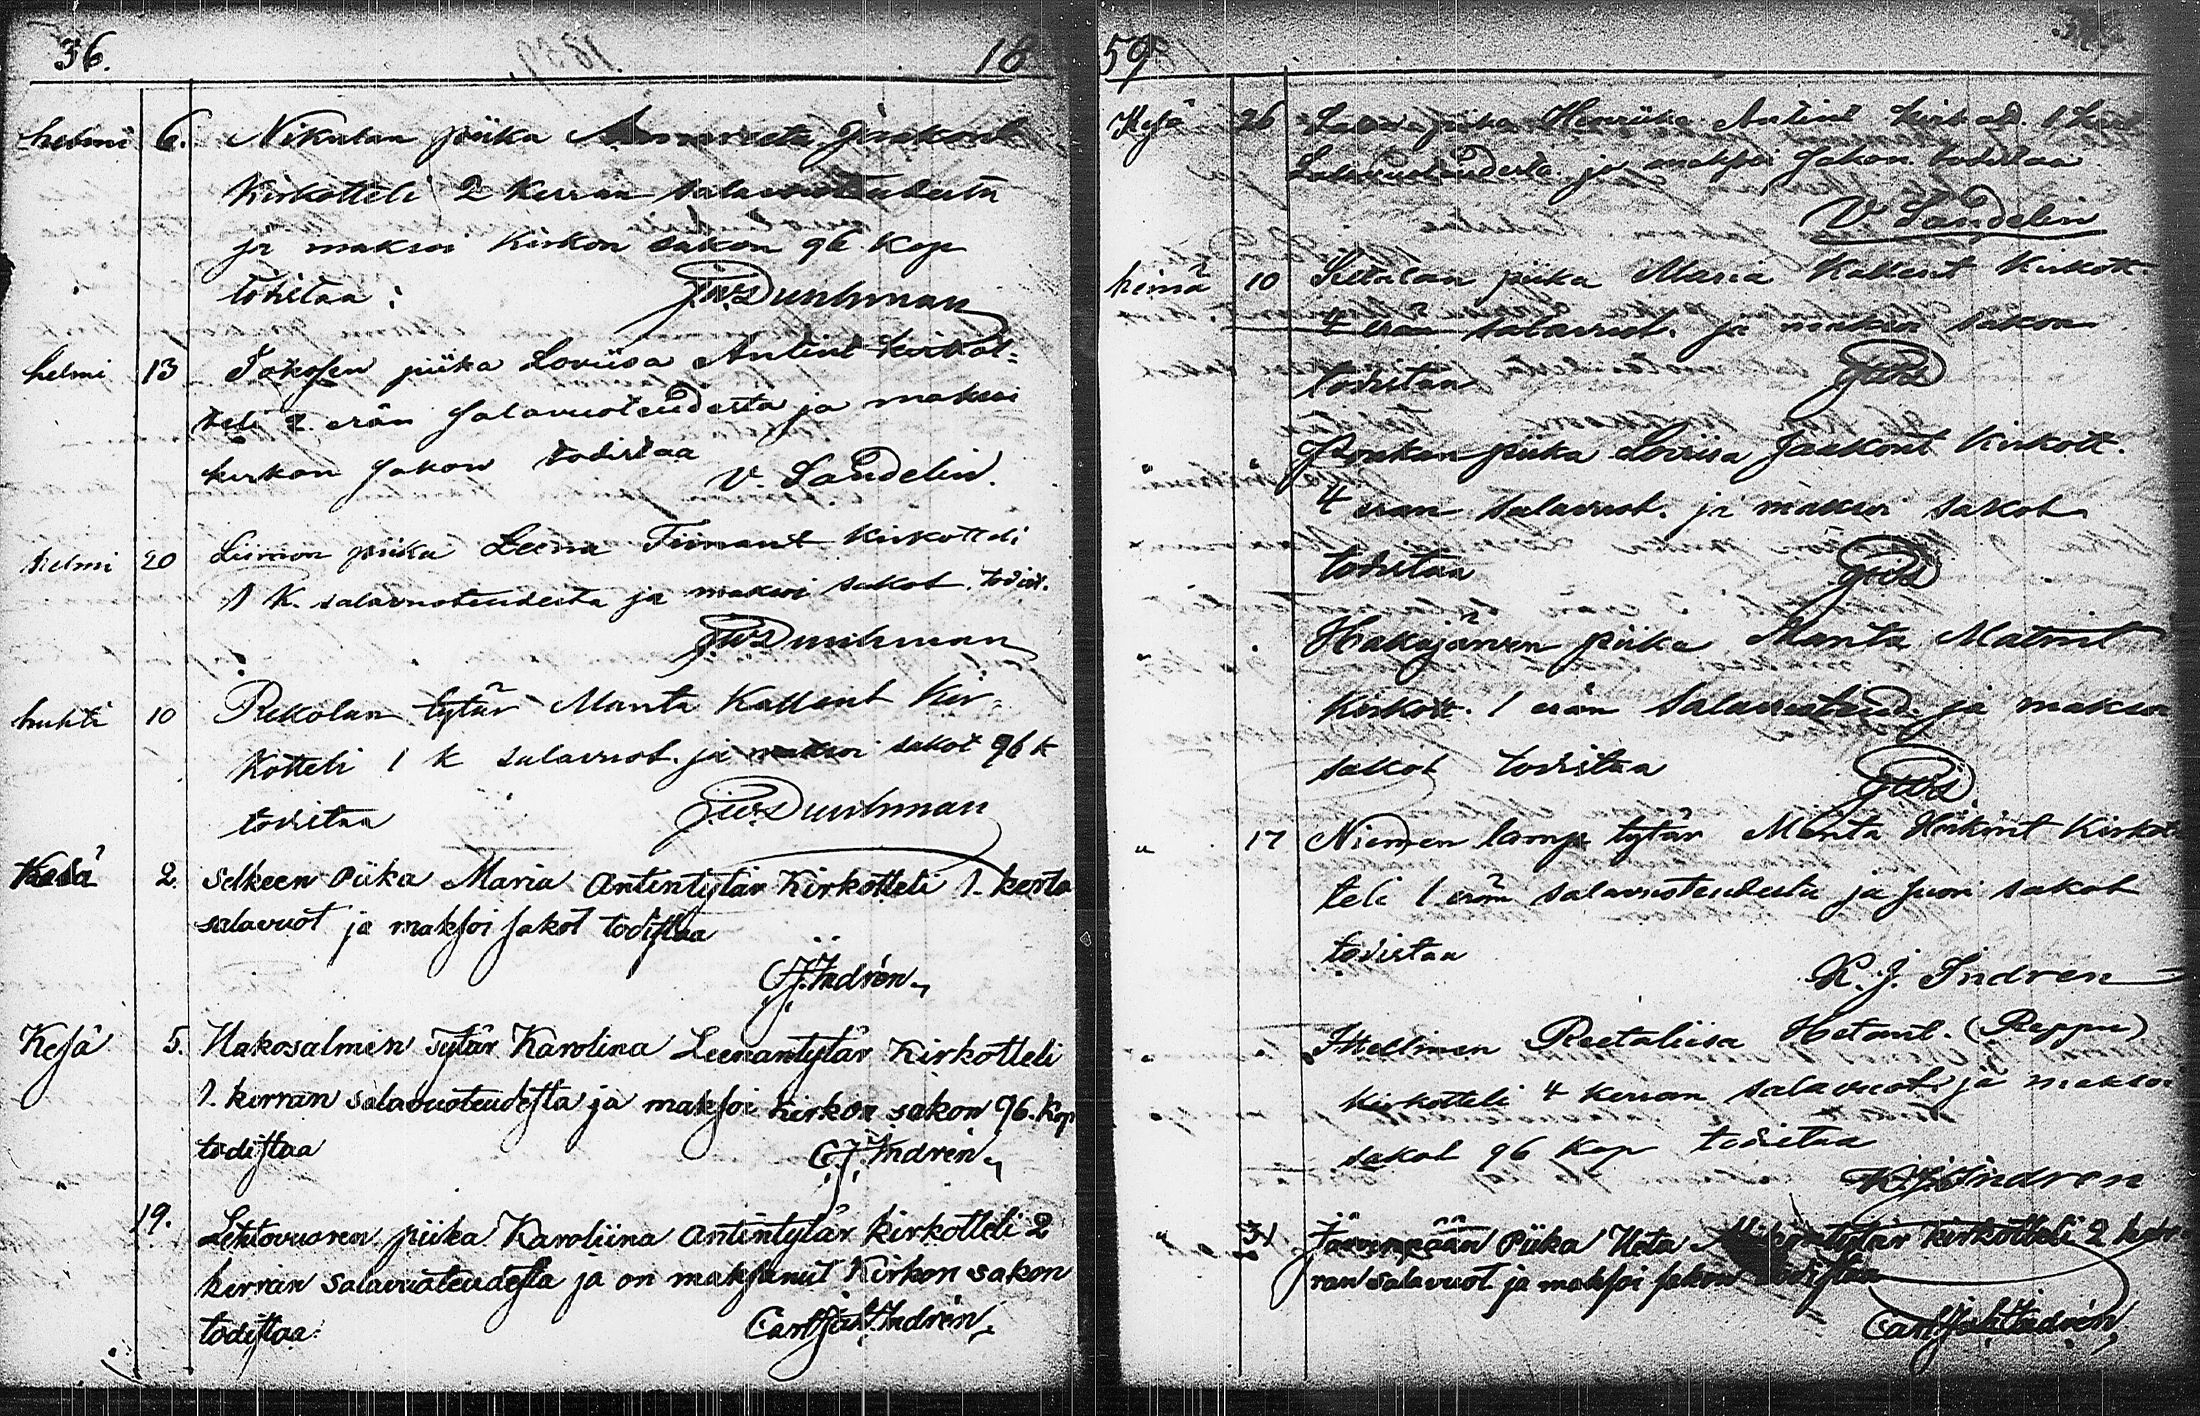 36. 18
helmi 6. Nikulan piika Annareeta Jaakont
Kirkotteli 2 kerran salavuoteudesta
ja maksoi Kirkon sakon 96 Kop
todistaa:
helmi 13 piika Loviisa Antint kirkot=
teli 2. erän salavuoteudesta ja maksoi
kirkon sakon todistaa V. Sandelin.
helmi 20 piika Leena Kirkotteli
1 K. salavuoteudesta ja maksoi sakot todist.
huhti 10 Rekolan tytär Manta Kallent Kir=
kotteli 1 k salavuot. ja maksoi sakot 96 k
todistaa
Kesä 2. Selkeen piika Maria Antintytär Kirkotteli 1. kerta
salavuot ja maksoi sakot todistaa
C.J. Indrén
Kesä 5. Hakosalmen tytär Karolina Leenantytär Kirkotteli
1. kerran salavuoteudesta ja maksoi kirkon sakon 96. Kop
todistaa C.J. Indrén
" 19. Lehtovuoren piika Karoliina Antintytär kirkotteli 2
kerran salavuoteudesta ja on maksanut Kirkon sakon
todistaa: Carl Joh Indrén
59
Kesä 26 piika Henriika Antint
Salavuoteudesta ja maksoi sakon todistaa
V. Sandelin
heinä 10 piika Maria Kallent Kirkott.
4 erän salavuot. ja maksoi sakon
todistaa
piika Loviisa Jaakont Kirkott.
4 erän salavuot. ja maksoi sakot
todistaa
" Hakajärven piika Manta Matint
Kirkott. 1 erän Salavuoteud. ja maksoi
sakot todistaa
" 17 Niemen lamp. tytär Manta Kirkot
teli 1 erän salavuoteudesta ja suori sakot
todistaa
K. J. Indren
" Itsellinen Reetaliisa Hetant. (Reppu)
kirkotteli 4 kerran salavuot. ja maksoi
sakot 96 Kop todistaa
K. J. Indren
" 31 Järvenpään piika Ueta kirkotteli 2 ker-
ran salavuot ja maksoi sakon todistaa
Carl Joh Indrén